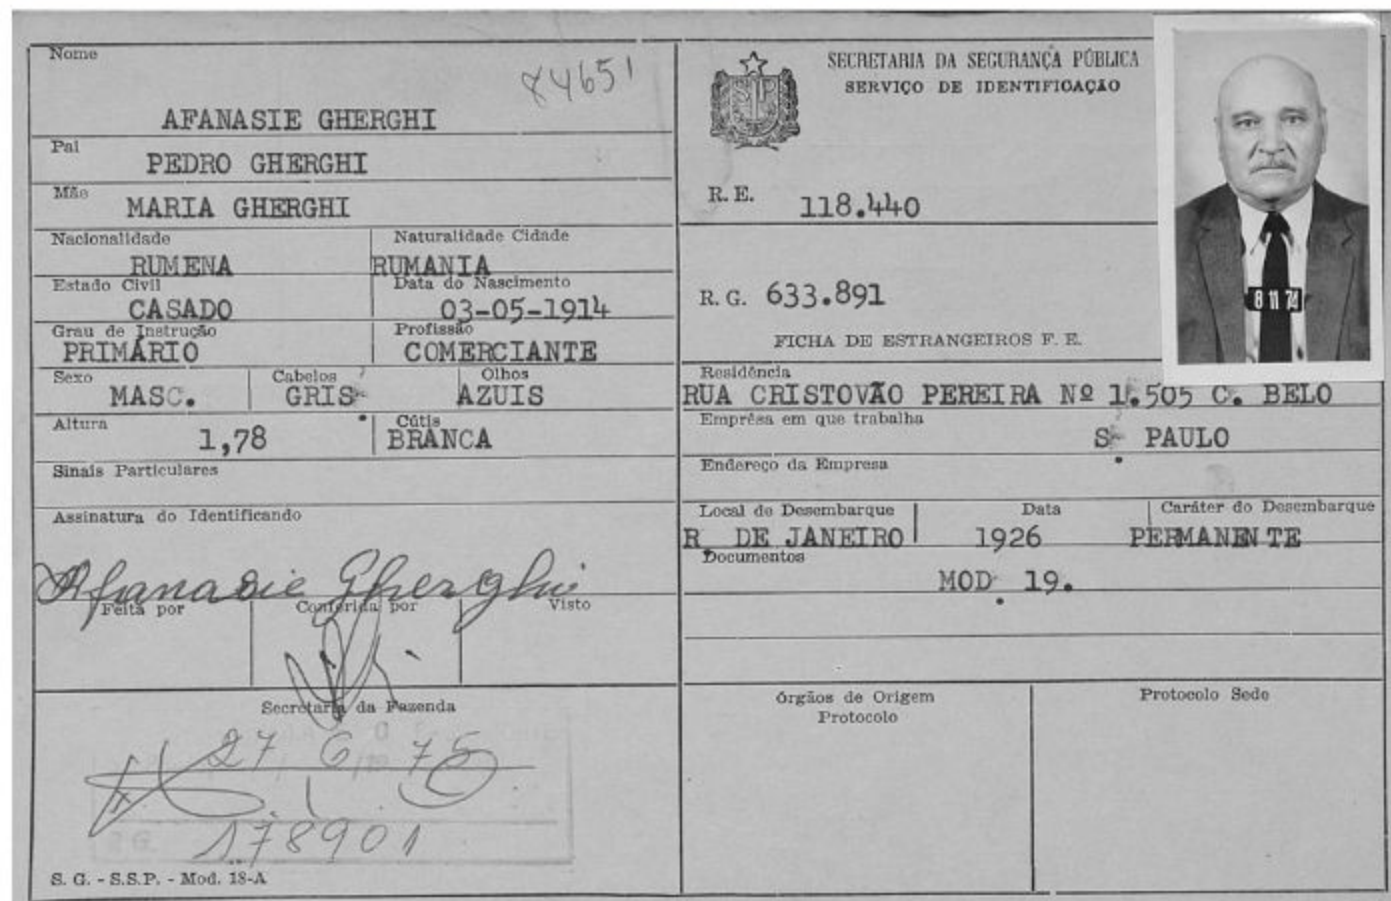 Nome
84651
AFANASIE GHERGHI
Pai
PEDRO GHERGHI
Mãe
MARIA GHERGHI
Nacionalidade Naturalidade Cidade
RUMENA RUMANIA
Estado Civil Data do Nascimento
CASADO 03-05-1914
Grau de Instrução Profissão
PRIMÁRIO COMERCIANTE
Sexo Cabelos Olhos
MASC. GRIS. AZUIS
Altura Cútis
1,78 BRANCA
Sinais Particulares
Assinatura do Identificando
Afanasie Gherghi
Feita por Conferida por Visto
Secretaria da Fazenda
27 6 75
178901
S. G. - S.S.P. - Mod. 18-A
SECRETARIA DA SEGURANÇA PÚBLICA
SERVIÇO DE IDENTIFICAÇÃO
R. E. 118.440
R. G. 633.891
FICHA DE ESTRANGEIROS F. E.
8 11 74
Residência
RUA CRISTOVÃO PEREIRA Nº 1.505 C. BELO
Emprêsa em que trabalha
S. PAULO
Endereço da Empresa
Local de Desembarque Data Caráter do Desembarque
R. DE JANEIRO 1926 PERMANENTE
Documentos
MOD. 19.
órgãos de Origem Protocolo Sede
Protocolo